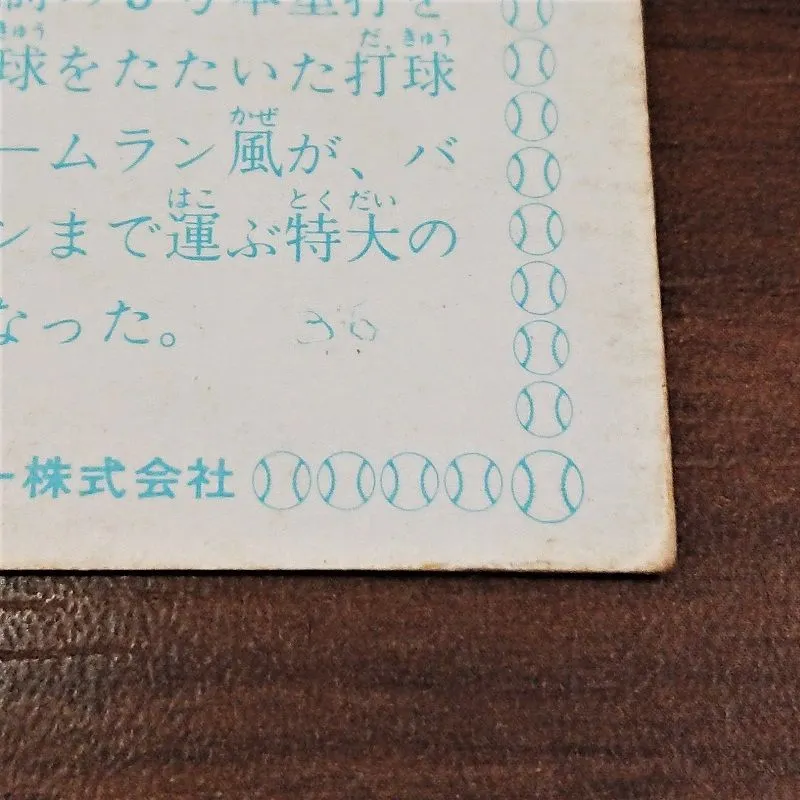 号本塁打を
球をたたいた打球
ームラン風が、バ
ンまで運ぶ特大の
なった。 36
ー株式会社